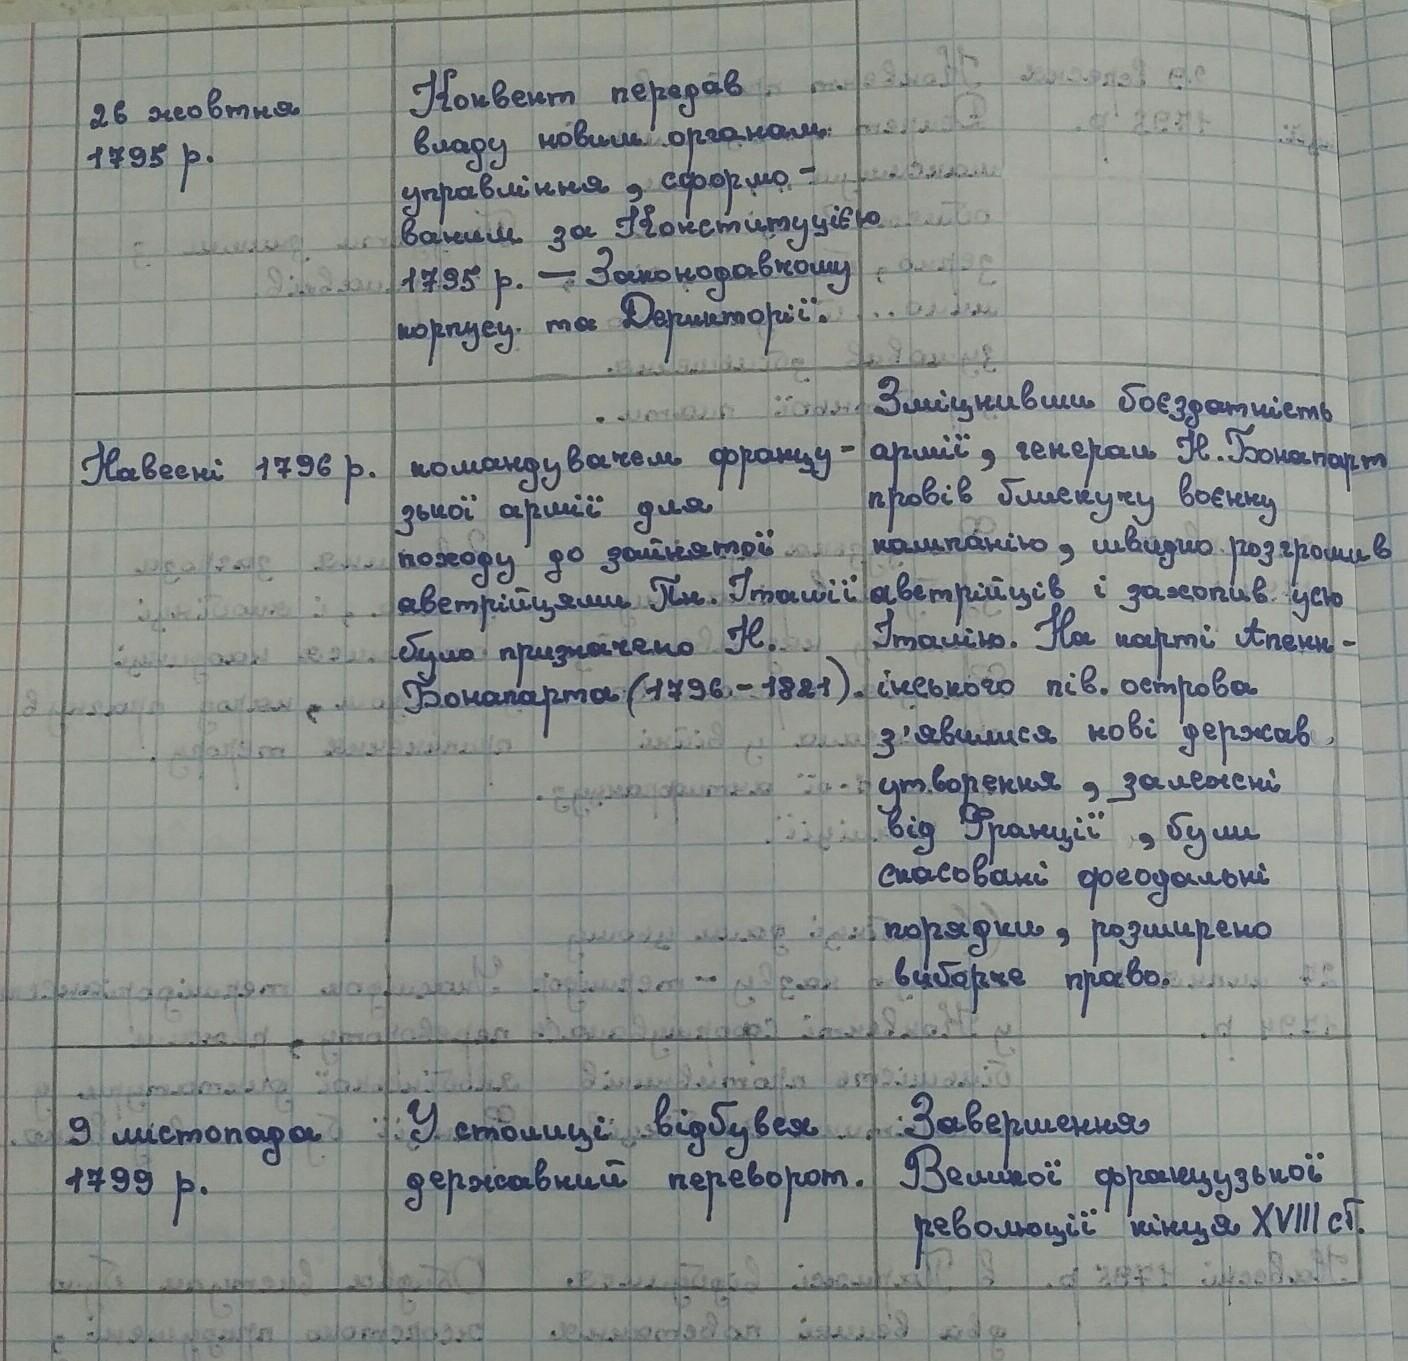 26 жовтня
1795 р.
Конвент передав
владу новим органам
управління, сформо-
ваним за Конституцією
1795 р. — Законодавчому
корпусу та Директорії.
Навесні 1796 р.
командувачем францу-
зької армії для
походу до зайнятої
австрійцями Пн. Італії
було призначено Н.
Бонапарта (1796-1821).
Зміцнивши боєздатність
армії, генерал Н. Бонапарт
провів блискучу воєнну
кампанію, швидко розгромив
австрійців і захопив усю
Італію. На карті Апенн-
інського пів. острова
з'явилися нові держав
утворення, залежні
від Франції, були
скасовані феодальні
порядки, розширено
виборче право.
9 листопада
1799 р.
У столиці відбувся
державний переворот.
Завершення
Великої французької
революції кінця XVIII ст.